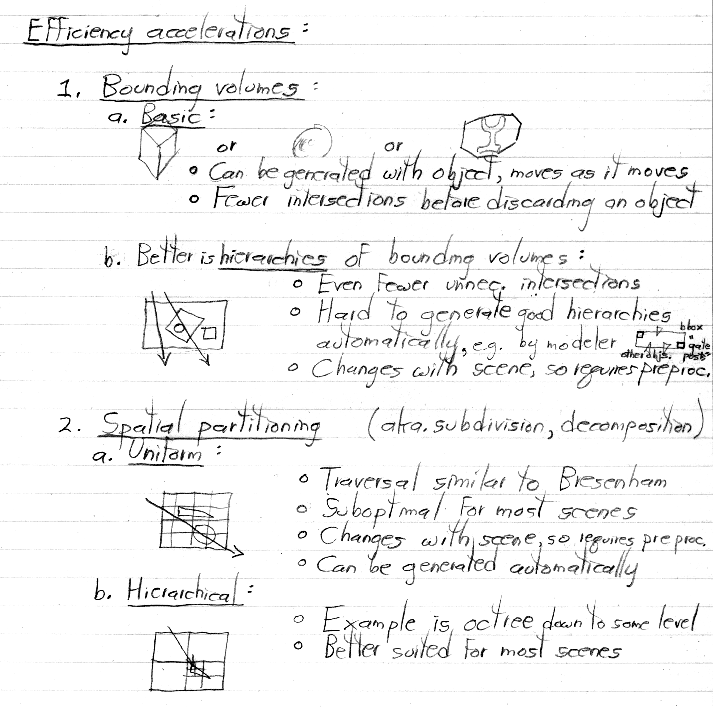 Efficiency accelerations :
1. Bounding volumes :
a. Basic :
or or
o Can be generated with object, moves as it moves
o Fewer intersections before discarding an object
b. Better is hierarchies of bounding volumes :
o Even fewer unnec. intersections
o Hard to generate good hierarchies
automatically, e.g. by modeler
bbox
gate
other objs. posts
o Changes with scene, so requires preproc.
2. Spatial partitioning (aka. subdivision, decomposition)
a. Uniform :
o Traversal similar to Bresenham
o Suboptimal for most scenes
o Changes with scene, so requires preproc.
o Can be generated automatically
b. Hierarchical :
o Example is octree down to some level
o Better suited for most scenes